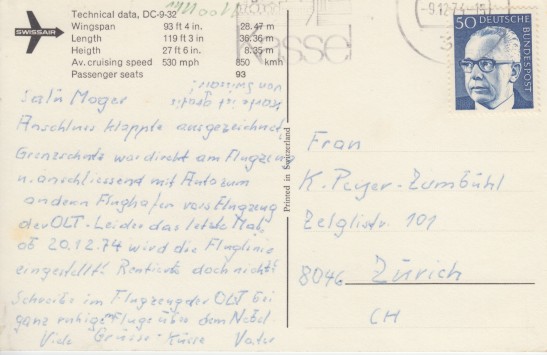 SWISSAIR
Technical data, DC-9-32
Wingspan 93 ft 4 in. 28.47 m
Length 119 ft 3 in 36.36 m
Heigth 27 ft 6 in. 8.35 m
Av. cruising speed 530 mph 850 kmh
Passenger seats 93
Karte ist gratis
von Swissair!
Salü
Anschluss klappte ausgezeichnet
Grenzschutz war direkt am Flugzeug
u. anschliessend mit Auto zum
andern Flughafen vors Flugzeug
der OLT - Leider das letzte Mal,
ab 20.12.74 wird die Fluglinie
eingestellt! Rentierte doch nicht!
Schreibe im Flugzeug der OLT bei
ganz ruhige Fluge über dem Nebel
Viele Grüsse + Küsse Vater
Printed in Switzerland
Kassel
-9.12.74-15
50 DEUTSCHE BUNDESPOST
Frau
K. Peyer-Zumbühl
Zelglistr. 101
8046 Zürich
CH